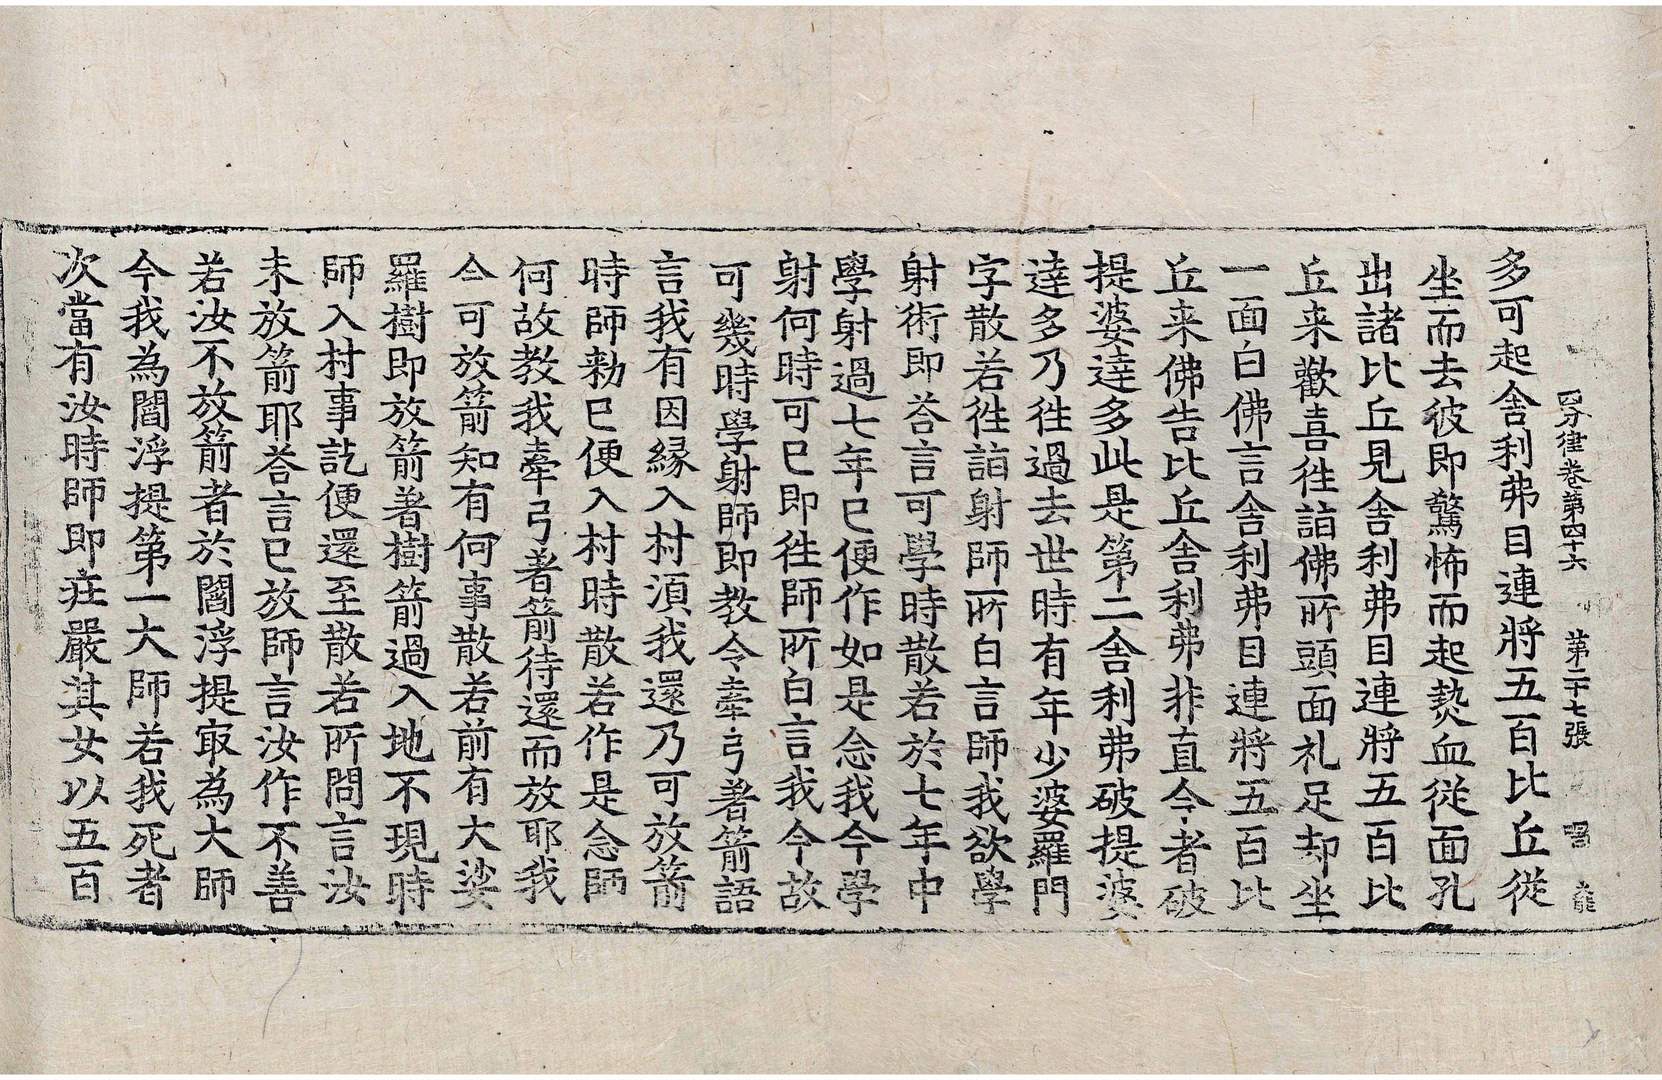 四分律卷第四十六 第二十七張
多可起舍利弗目連將五百比丘從
坐而去彼即驚怖而起𤍠血從面孔
出諸比丘見舍利弗目連將五百比
丘来歡喜徃詣佛所頭面礼足却坐
一面白佛言舍利弗目連將五百比
丘来佛告比丘舍利弗非直今者破
提婆達多此是第二舍利弗破提婆
達多乃徃過去世時有年少婆羅門
字散若徃詣射師所白言師我欲學
射術即荅言可學時散若於七年中
學射過七年已便作如是念我今學
射何時可已即徃師所白言我今故
可幾時學射師即教令牽弓著箭語
言我有因緣入村湏我還乃可放箭
時師勑已便入村時散若作是念師
何故教我牽弓著箭待還而放耶我
今可放箭知有何事散若前有大娑
羅樹即放箭著樹箭過入地不現時
師入村事訖便還至散若所問言汝
未放箭耶荅言已放師言汝作不善
若汝不放箭者於閻浮提㝡為大師
今我為閻浮提第一大師若我死者
次當有汝時師即莊嚴其女以五百